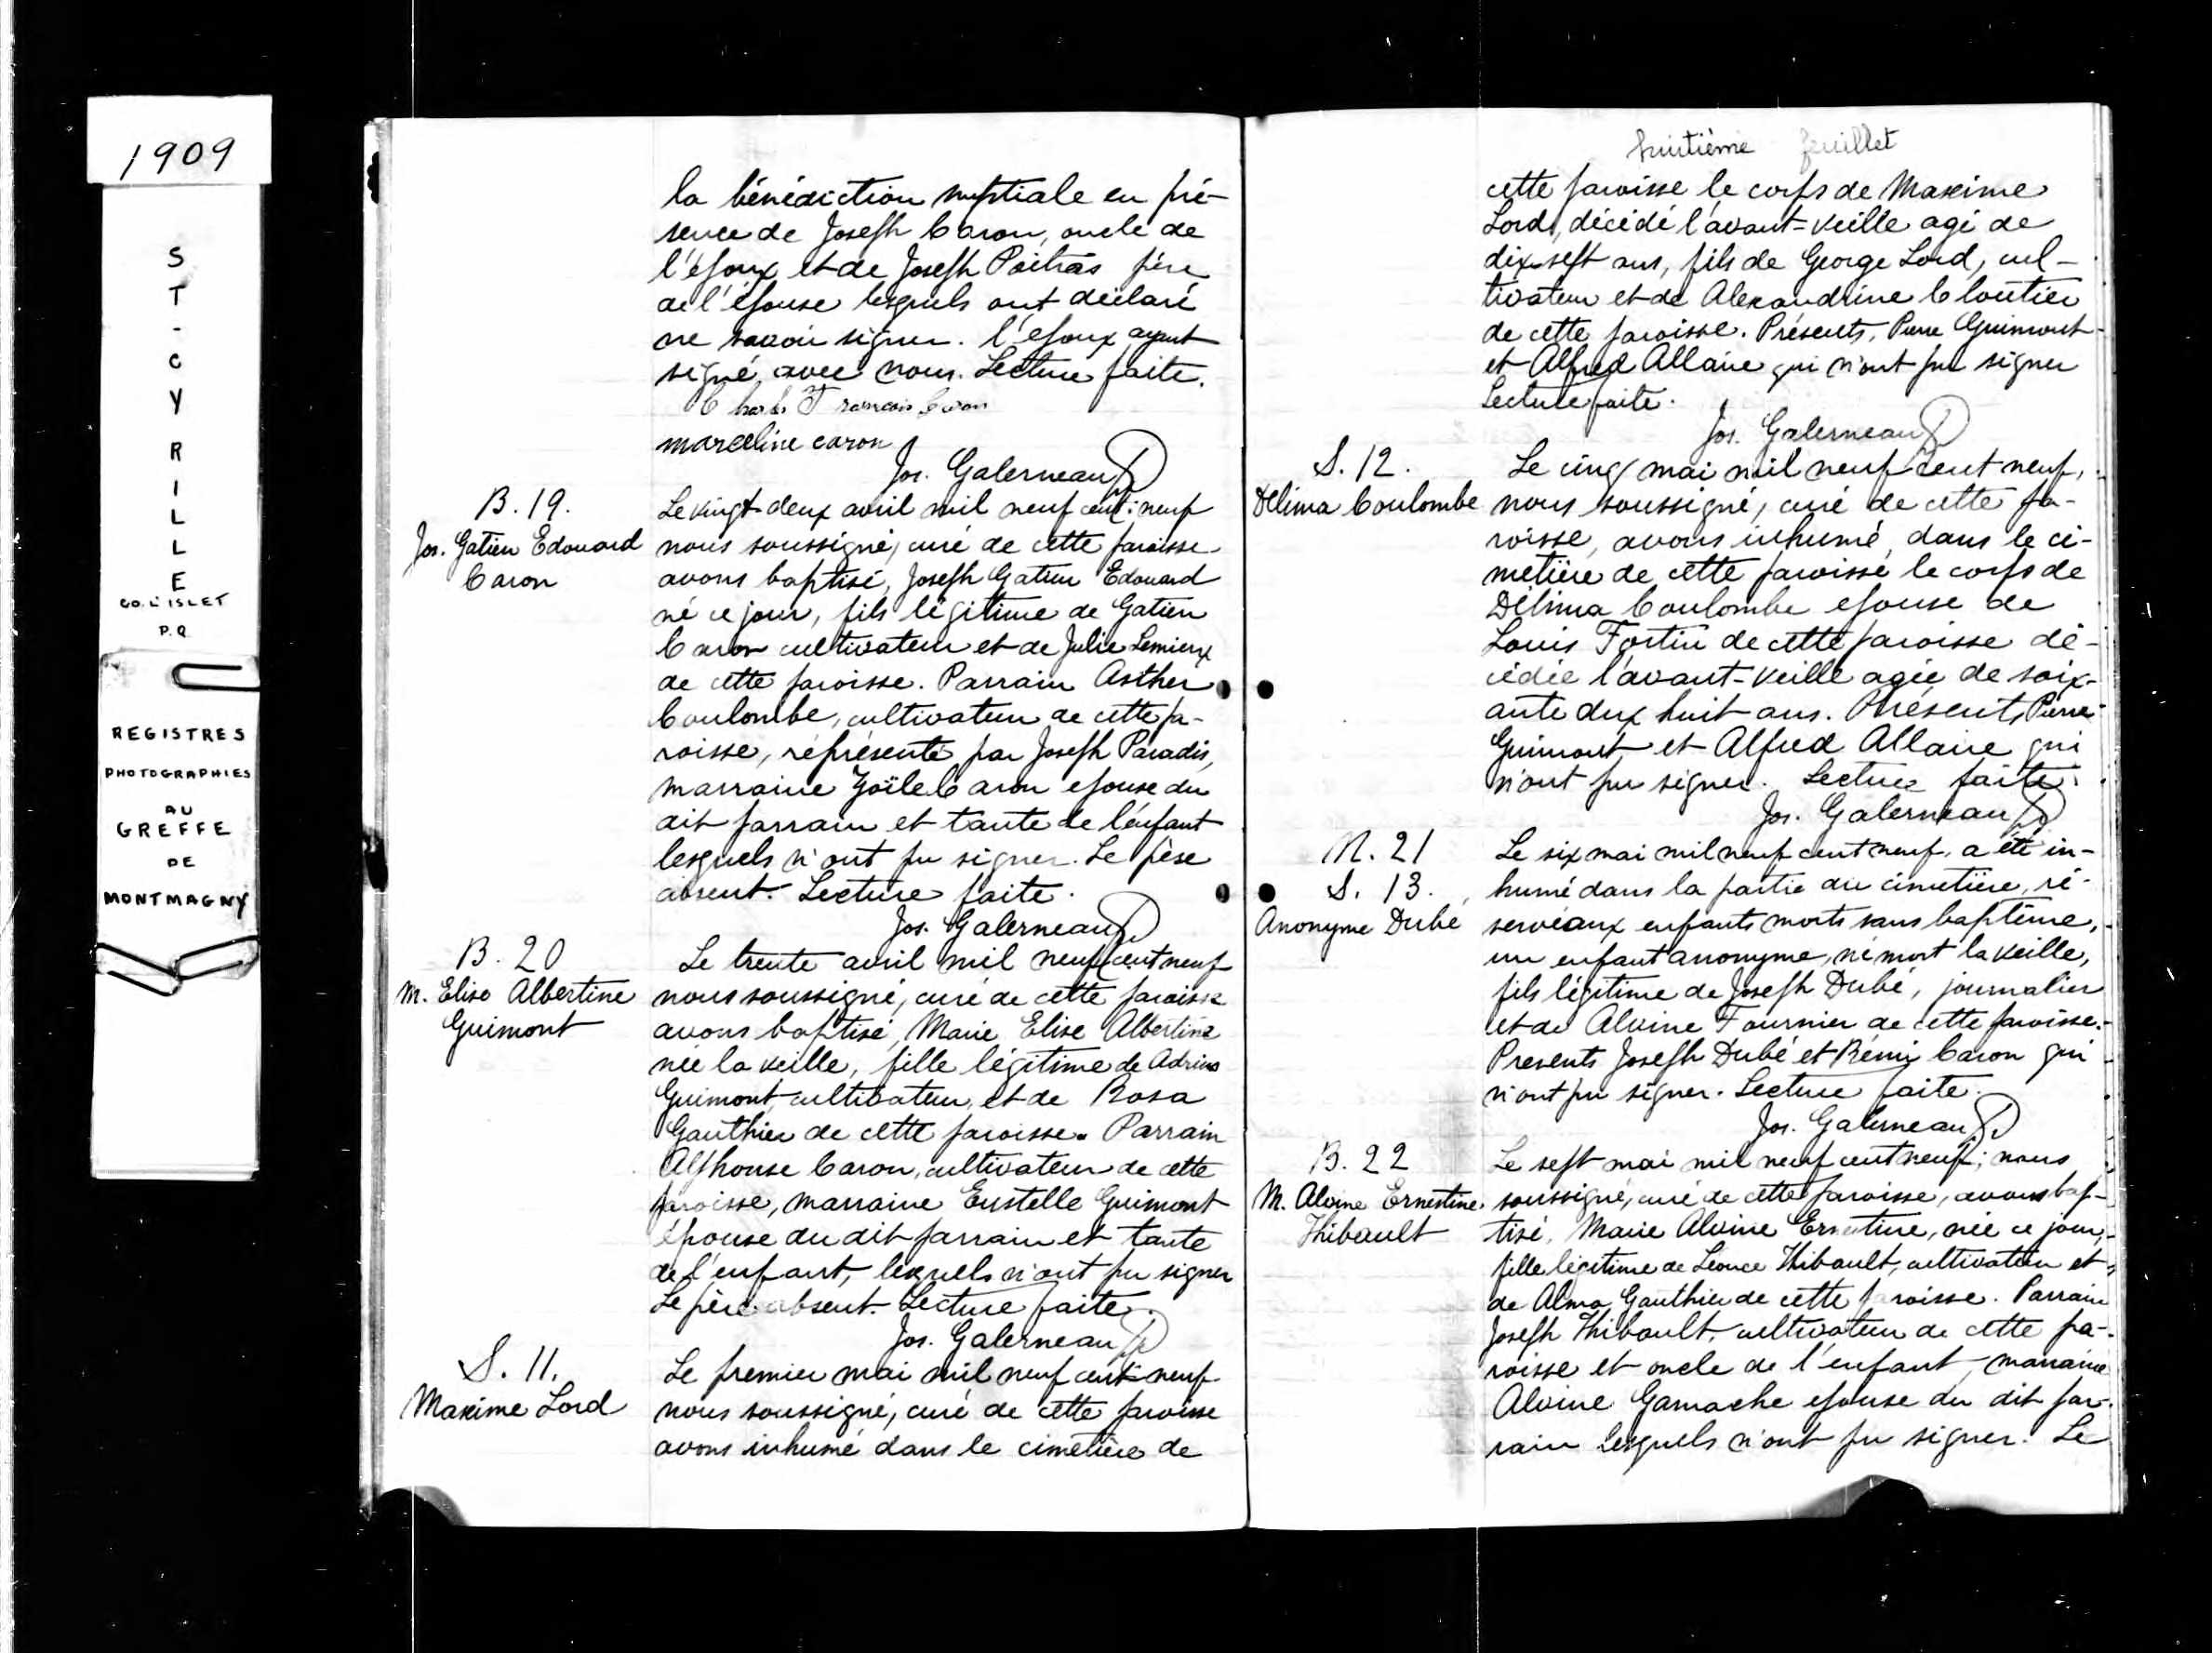 1909
ST-CYRILLE
CO. L'ISLET
P.Q.
REGISTRES
PHOTOGRAPHIES
AU
GREFFE
DE
MONTMAGNY
la bénédiction nuptiale en pré-
sence de Joseph Caron, oncle de
l'époux et de Joseph Poitras père
de l'épouse lesquels ont déclaré
ne savoir signer. l'époux ayant
signé avec nous. Lecture faite.
Charles François Caron
marceline caron
Jos. Galerneau
B. 19.
Jos. Gatien Edouard
Caron
Le vingt-deux avril mil neuf cent-neuf
nous soussigné, curé de cette paroisse
avons baptisé, Joseph Gatien Edouard
né ce jour, fils légitime de Gatien
Caron cultivateur et de Julie Lemieux
de cette paroisse. Parrain Asther
Coulombe, cultivateur de cette pa-
roisse, représenté par Joseph Paradis,
marraine Zoïle Caron epouse du
dit parrain et tante de l'enfant
lesquels n'ont pu signer. Le père
absent. Lecture faite.
Jos. Galerneau
B. 20
M. Elise Albertine
Guimont
Le trente avril mil neuf cent neuf
nous soussigné, curé de cette paroisse
avons baptisé, Marie Elise Albertine
née la veille, fille légitime de
Guimont, cultivateur, et de Rosa
Gauthier de cette paroisse. Parrain
Alphonse Caron, cultivateur de cette
paroisse, marraine Eustelle Guimont
épouse du dit parrain et tante
de l'enfant, lesquels n'ont pu signer
Le père absent. Lecture faite.
Jos. Galerneau
S. 11.
Maxime Lord
Le premier mai mil neuf cent-neuf
nous soussigné, curé de cette paroisse
avons inhumé dans le cimetière de
huitième feuillet
cette paroisse le corps de Maxime
Lord, décédé l'avant-veille agé de
dix-sept ans, fils de George Lord, cul-
tivateur et de Alexandrine Cloutier
de cette paroisse. Présents, Pierre Guimont
et Alfred Allaire qui n'ont pu signer
Lecture faite.
Jos. Galerneau
S. 12.
Délima Coulombe
Le cinq mai mil neuf cent neuf,
nous soussigné, curé de cette pa-
roisse, avons inhumé, dans le ci-
metière de cette paroisse le corps de
Délima Coulombe epouse de
Louis Fortin de cette paroisse dé-
cédée l'avant-veille agée de soix-
ante dix huit ans. Présents Pierre
Guimont et Alfred Allaire qui
n'ont pu signer. Lecture faite.
Jos. Galerneau
N. 21
S. 13.
Anonyme Dubé
Le six mai mil neuf cent neuf, a été in-
humé dans la partie du cimetière, ré-
servé aux enfants morts sans baptême,
un enfant anonyme, né mort la veille,
fils légitime de Joseph Dubé, journalier
et de Alvine Fournier de cette paroisse.
Presents Joseph Dubé et Rémi Caron qui
n'ont pu signer. Lecture faite.
Jos. Galerneau
B. 22
M. Alvine Ernestine
Thibault
Le sept mai mil neuf cent neuf, nous
soussigné, curé de cette paroisse, avons bap-
tisé, Marie Alvine Ernestine, née ce jour,
fille légitime de Léonce Thibault, cultivateur et
de Alma Gauthier de cette paroisse. Parrain
Joseph Thibault, cultivateur de cette pa-
roisse et oncle de l'enfant, marraine
Alvine Gamache epouse du dit par-
rain lesquels n'ont pu signer. Le